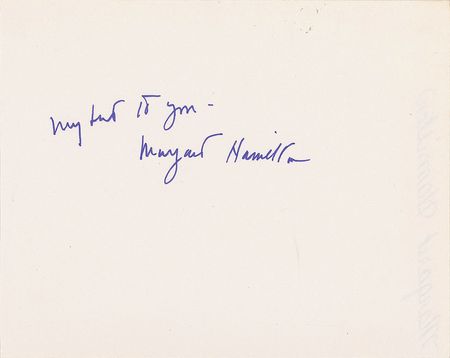 My best to you -
Margaret Hamilton